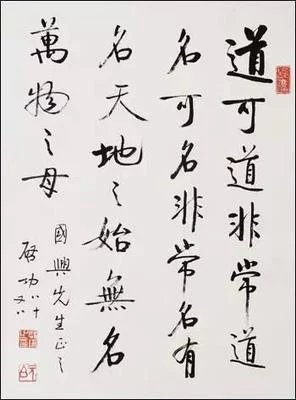 道可道非常道
名可名非常名有
名天地之始無名
萬物之母
國興先生正之
啓功八十又八